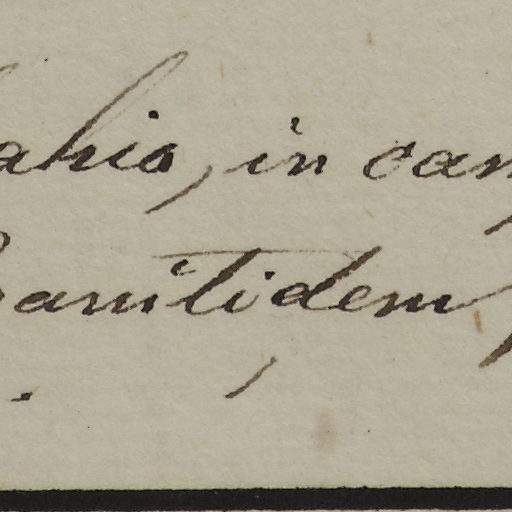 ahia, in cam
Banitidem